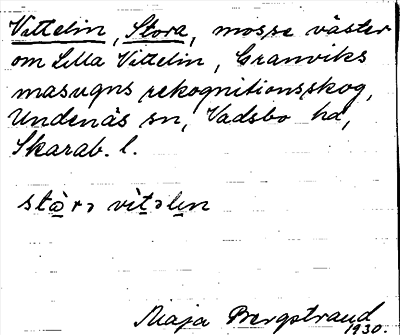 Vittelin, Stora, mosse väster
om Lilla Vittelin, Granviks
masugns rekognitionsskog,
Undenäs sn, Vadsbo hd,
Skarab. l.
Maja Bergstrand
1930.